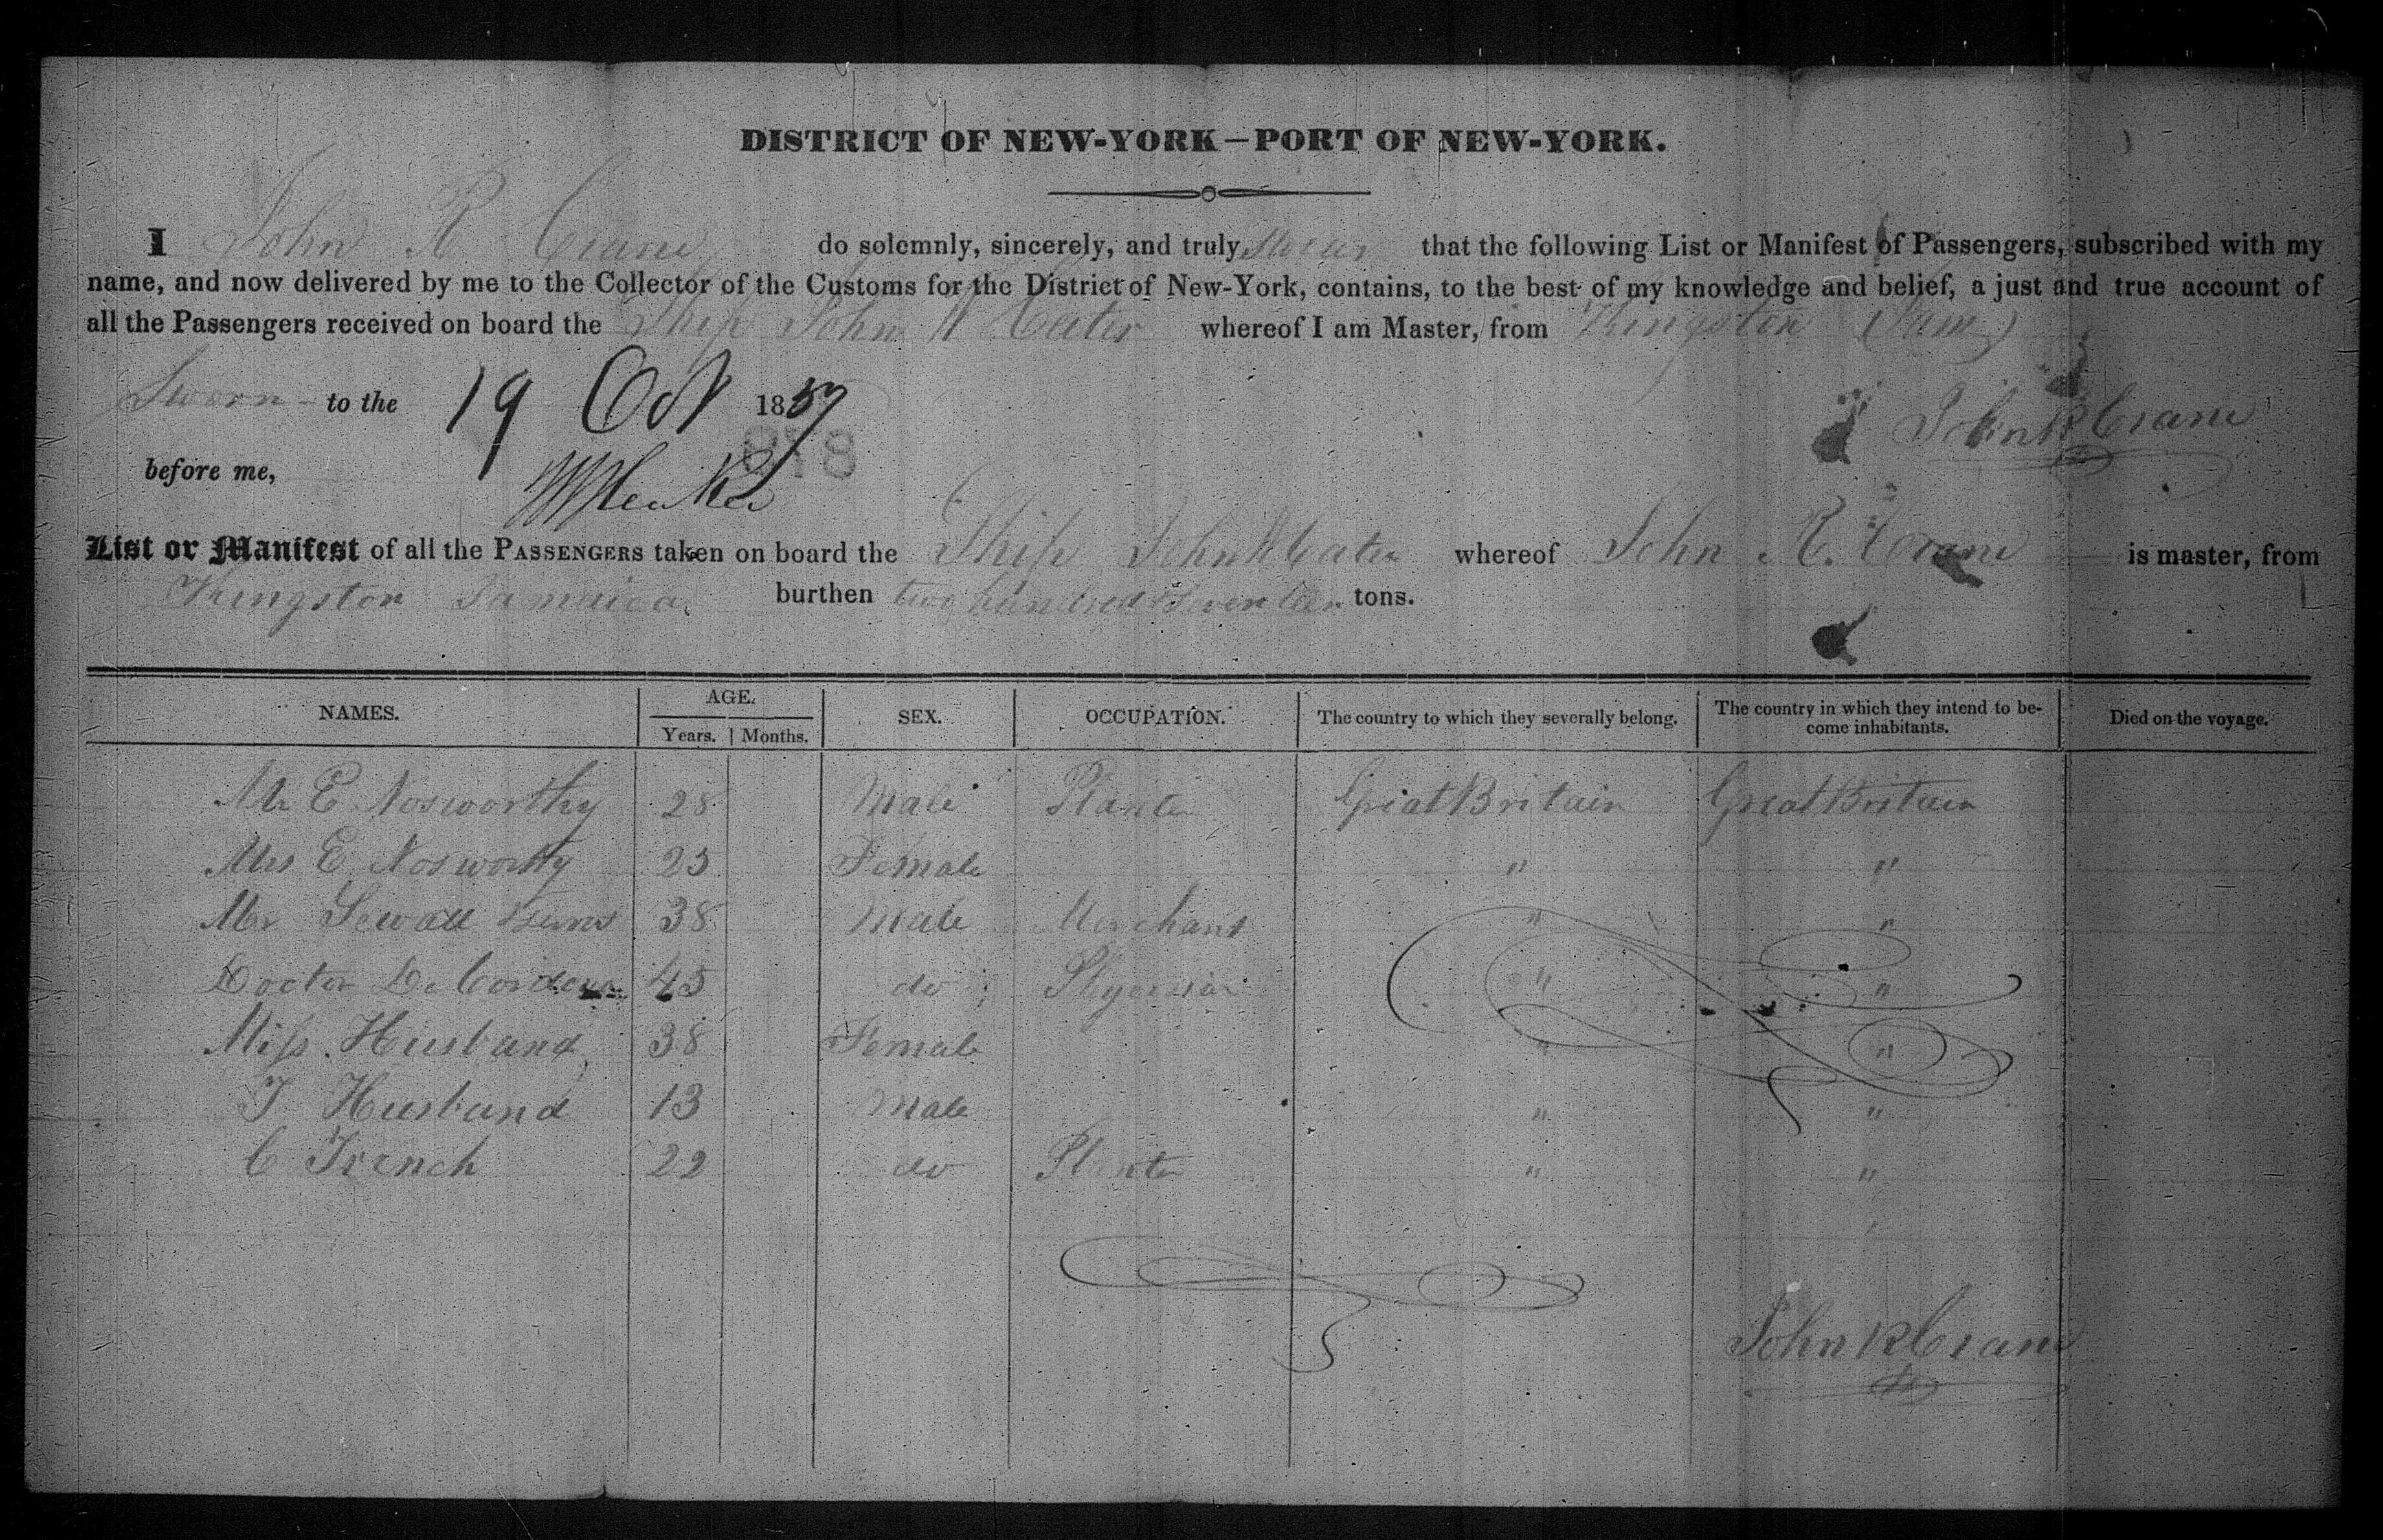 DISTRICT OF NEW-YORK—PORT OF NEW-YORK.
I John R Crane do solemnly, sincerely, and truly, Swear that the following List or Manifest of Passengers, subscribed with my
name, and now delivered by me to the Collector of the Customs for the District of New-York, contains, to the best of my knowledge and belief, a just and true account of
all the Passengers received on board the Ship John W Cater whereof I am Master, from Kingston Jam
Sworn to the 19 Oct 1857
John R Crane
878
before me,
List or Manifest of all the PASSENGERS taken on board the Ship John W Cater whereof John R. Crane is master, from
Kingston Jamaica burthen two hundred & seventeen tons.
NAMES. AGE. Years. Months. SEX. OCCUPATION. The country to which they severally belong. The country in which they intend to be-come inhabitants. Died on the voyage.
Mr E Nosworthy 28 Male Planter Great Britain Great Britain
Mrs E Nosworthy 25 Female " "
Mr Sewall 38 Male Merchant " "
Doctor De Cordova 45 do Physician " "
Miss Husband 38 Female " "
T Husband 13 Male " "
C French 22 do Planter " "
John R Crane